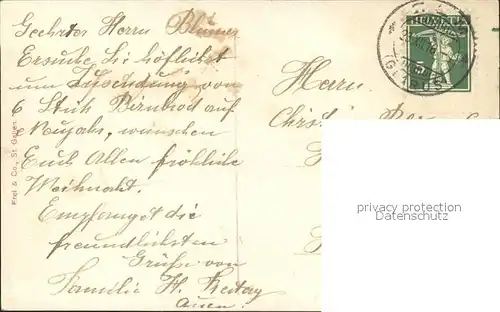 Geehrter Herrn Blumer
Ersuche Sie höflichst
um Zusendung von
6 Stük Birnbrod auf
Neujahr, wünschen
Euch Allen fröhliche
Weihnacht.
Empfanget die
freundlichsten
Grüße von
Familie H. Freitag
Frei & Co., St. Gallen
HELVETIA
Herrn
privacy protection
Datenschutz